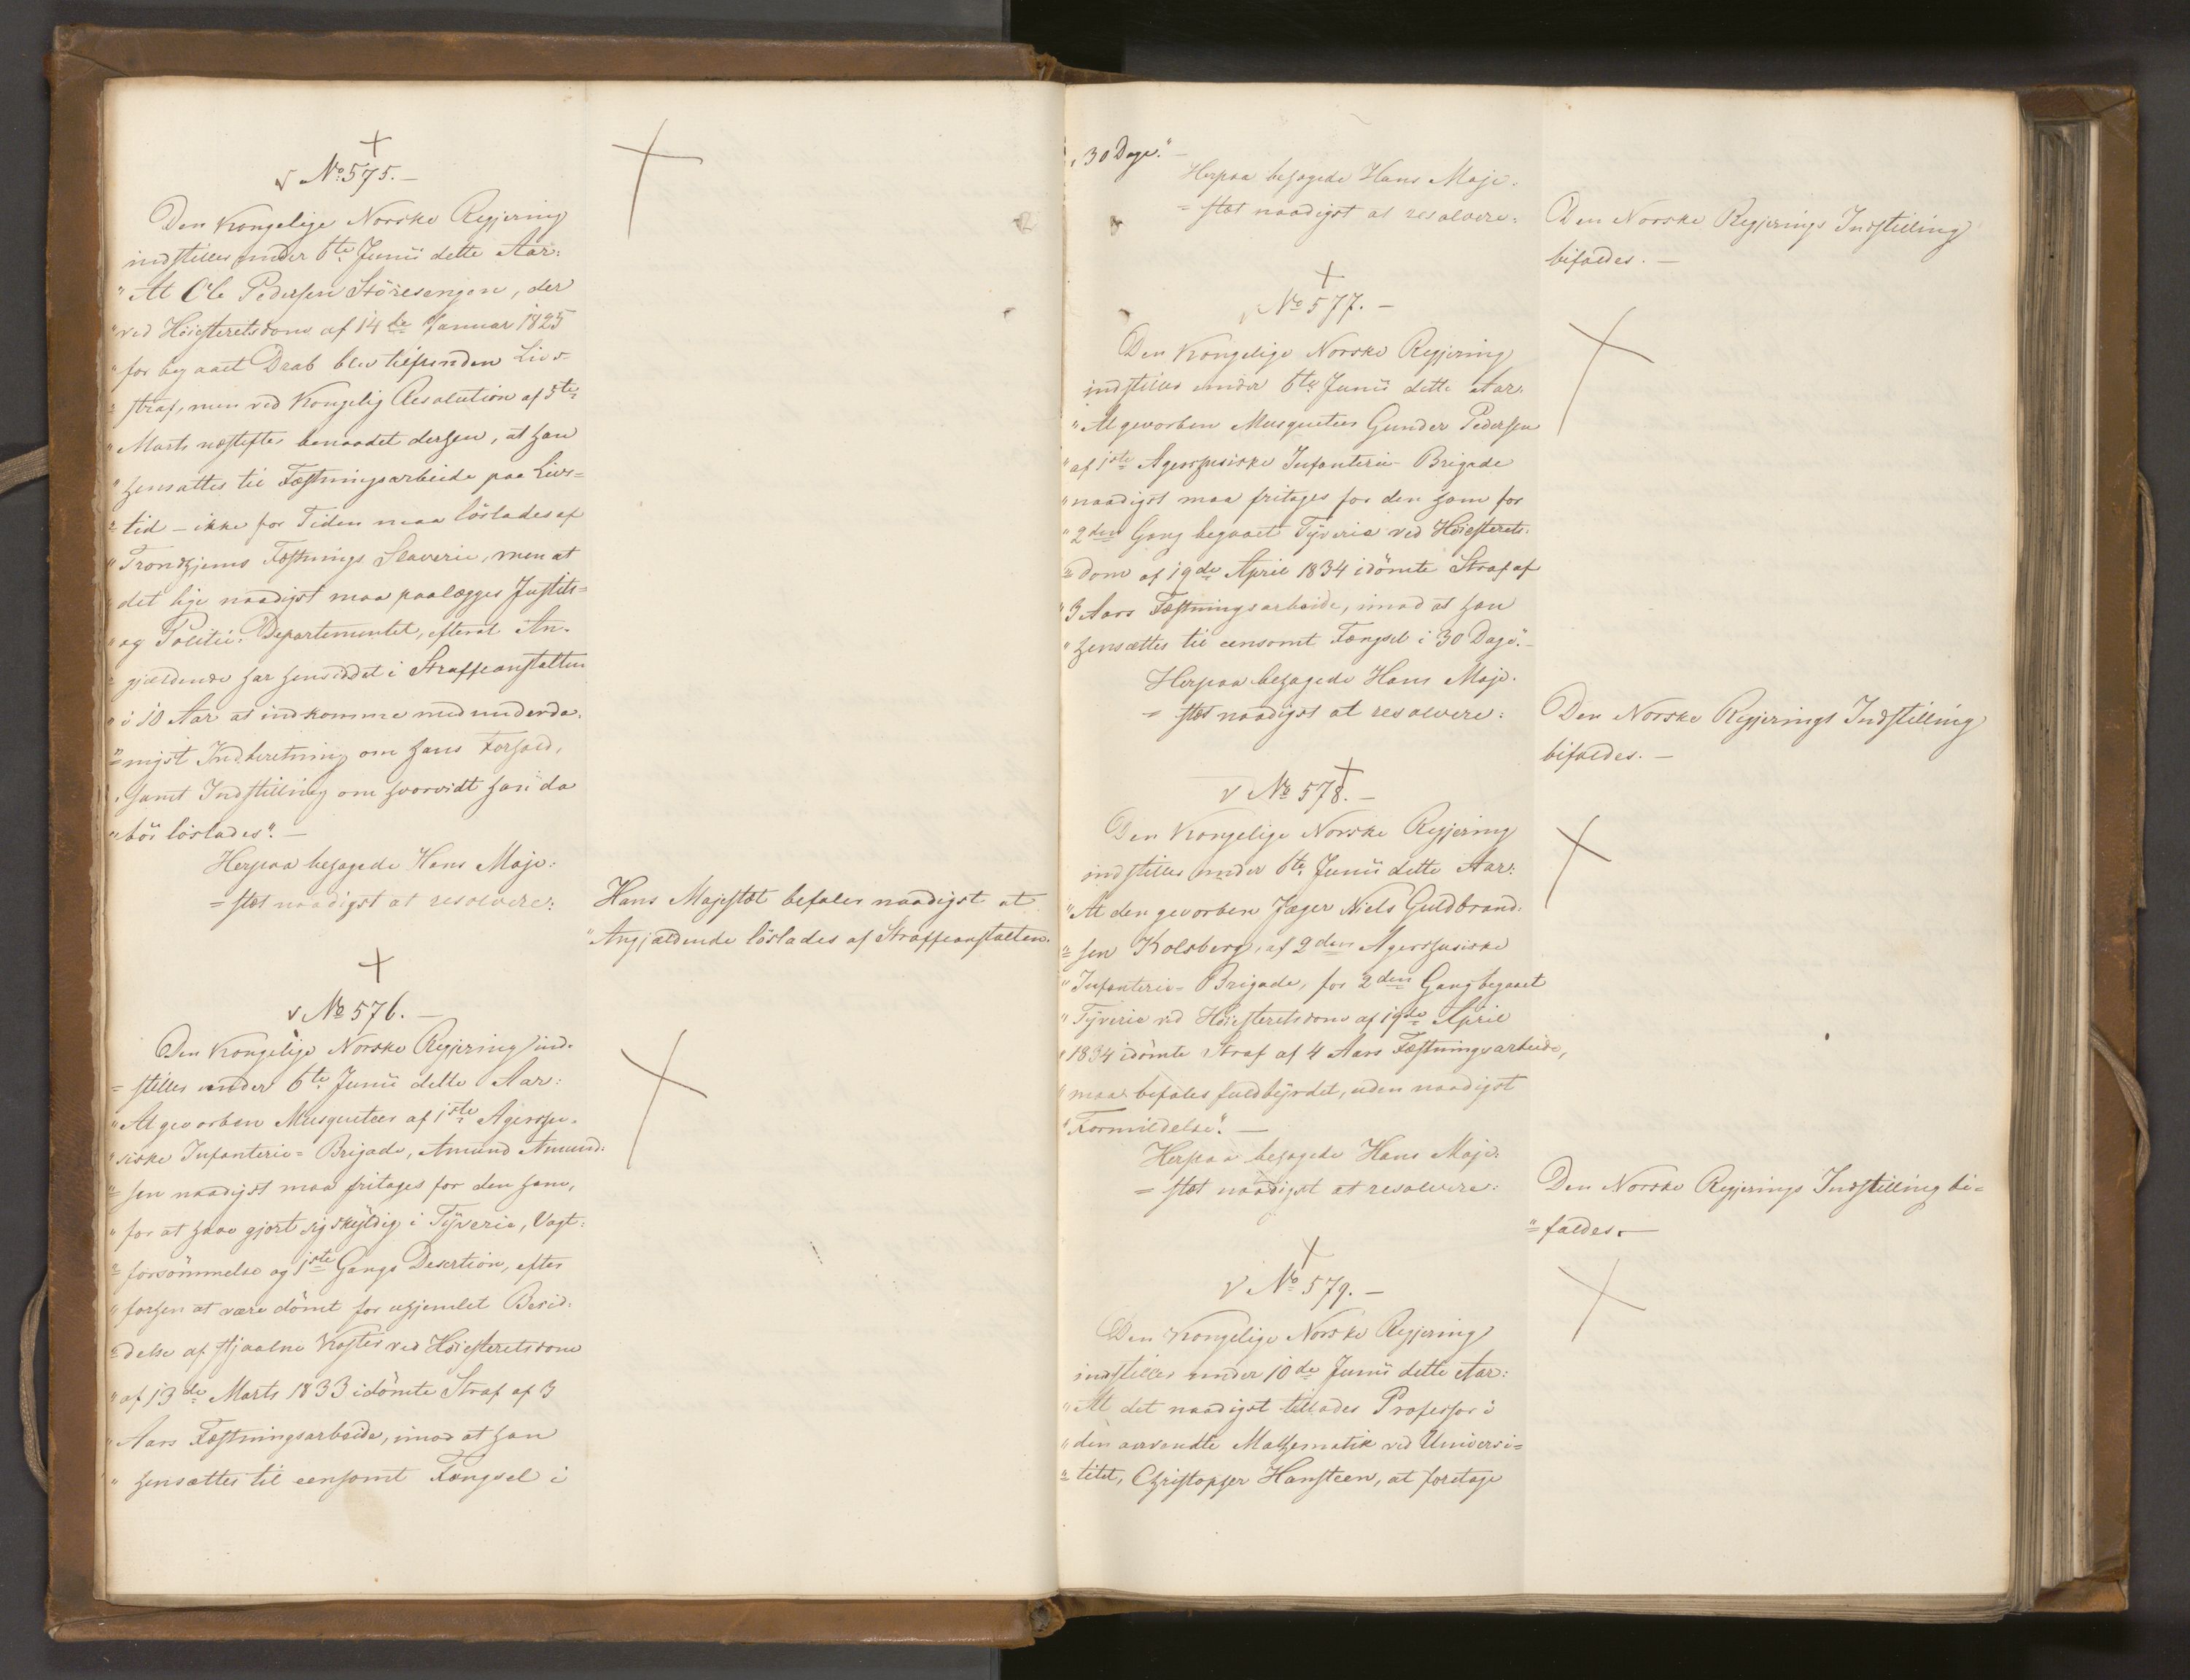 No 575.—
Den Kongelige Norske Regjering
indstiller under 6te Junii dette Aar:
"At Ole Pedersen Störesengen, der
"ved Höiesteretsdom af 14de Januar 1825
"for begaaet Drab blev tilfunden Livs-
"straf, men ved Kongelig Resolution af 5te
"Marts næstefter benaadet derhen, at han
"hensattes til Fæstningsarbeide paa Livs=
"tid – ikke for Tiden maa löslades af
"Trondhjems Fæstnings Slaverie, men at
"det lige naadigst maa paalægges Justits=
"og Politie-Departementet, efterat An-
"gjældende har hensiddet i Straffeanstalten
"i 10 Aar at indkomme med underda-
"nigst Indberetning om hans Forhold,
"samt Indstilling om hvorvidt han da
"bör löslades".—
Herpaa behagede Hans Maje-
=stæt naadigst at resolvere:
Hans Majestæt befaler naadigst at
"Angjældende löslades af Straffeanstalten.
No 576.—
Den Kongelige Norske Regjering ind-
=stiller under 6te Junii dette Aar:
"At gevorben Musqueteer af 1ste Agershu-
"siske Infanterie=Brigade, Amund Amund-
"sen naadigst maa fritages for den ham,
"for at have gjort sig skyldig i Tyverie, Vagt-
"forsömmelse og 1ste Gangs Desertion, efter
"forhen at være dömt for uhjemlet Besid-
"delse af stjaalne Koster ved Höiesteretsdom
"af 13de Marts 1833 idömte Straf af 3
"Aars Fæstningsarbeide, imod at han
"hensættes til eensomt Fængsel i
"30 Dage."—
Herpaa behagede Hans Maje-
=stæt naadigst at resolvere:
Den Norske Regjerings Indstilling
bifaldes.—
No 577.—
Den Kongelige Norske Regjering
indstiller under 6te Junii dette Aar:
"At gevorben Musqueteer Gunder Pedersen
"af 1ste Agershusiske Infanterie-Brigade
"naadigst maa fritages for den ham for
"2den Gang begaaet Tyverie ved Höiesterets-
"dom af 19de April 1834 idömte Straf af
"3 Aars Fæstningsarbeide, imod at han
"hensættes til eensomt Fængsel i 30 Dage".—
Herpaa behagede Hans Maje-
=stæt naadigst at resolvere:
Den Norske Regjerings Indstilling
bifaldes.—
No 578.—
Den Kongelige Norske Regjering
indstiller under 6te Junii dette Aar:
"At den gevorben Jæger Niels Guldbrand-
"sen Kolsberg, af 2den Agershusiske
"Infanterie=Brigade, for 2den Gang begaaet
"Tyverie ved Höiesteretsdom af 19de April
"1834 idömte Straf af 4 Aars Fæstningsarbeide,
"maa befales fuldbyrdet, uden naadigst
"Formildelse".—
Herpaa behagede Hans Maje-
=stæt naadigst at resolvere:
Den Norske Regjerings Indstilling bi=
"faldes.—
No 579.—
Den Kongelige Norske Regjering
indstiller under 10de Junii dette Aar:
"At det naadigst tillades Professor i
"den anvendte Mathematik ved Universi=
"tetet, Christopher Hansteen, at foretage